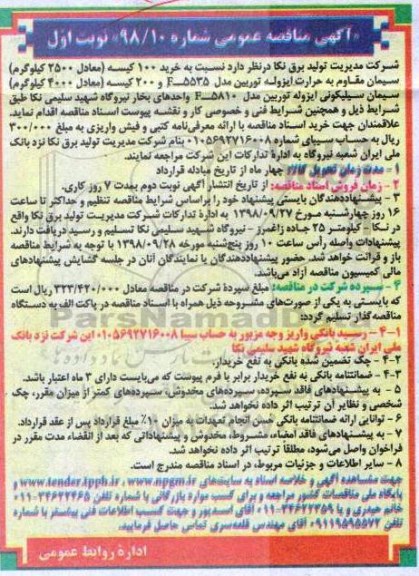 «آگهی مناقصه عمومی شماره ۹۸/۱۰» نوبت اول
شرکت مدیریت تولید برق نکا درنظر دارد نسبت به خرید ۱۰۰ کیسه (معادل ۲۵۰۰ کیلوگرم)
سیمان مقاوم به حرارت ایزوله توربین مدل F-۵۵۳۵ و ۲۰۰ کیسه (معادل ۴۰۰۰ کیلوگرم)
سیمان سیلیکونی ایزوله توربین مدل F-۵۸۱۰ واحدهای بخار نیروگاه شهید سلیمی نکا طبق
شرایط ذیل و همچنین شرایط فنی و خصوصی کار و نقشه پیوست اسناد مناقصه اقدام نماید.
علاقمندان جهت خرید اسناد مناقصه با ارائه معرفی‌نامه کتبی و فیش واریزی به مبلغ ۳۰۰/۰۰۰
ریال به حساب سیبای شماره ۰۱۰۵۶۹۲۷۱۶۰۰۸ بنام شرکت مدیریت تولید برق نکا نزد بانک
ملی ایران شعبه نیروگاه به اداره تدارکات این شرکت مراجعه نمایند.
۱- مدت زمان تحویل کالا: چهار ماه از تاریخ مبادله قرارداد
۲- زمان فروش اسناد مناقصه: از تاریخ انتشار آگهی نوبت دوم بمدت ۷ روز کاری.
۳- پیشنهاددهندگان بایستی پیشنهاد خود را براساس شرایط مناقصه تنظیم و حداکثر تا ساعت
۱۶ روز چهارشنبه مورخ ۱۳۹۸/۰۹/۲۷ به اداره تدارکات شرکت مدیریت تولید برق نکا واقع
در نکا - کیلومتر ۲۵ جاده زاغمرز - نیروگاه شهید سلیمی نکا تسلیم و رسید دریافت دارند.
پیشنهادات واصله رأس ساعت ۱۰ روز پنج‌شنبه مورخه ۱۳۹۸/۰۹/۲۸ با توجه به شرایط مناقصه
باز و قرائت خواهد شد. حضور پیشنهاددهندگان یا نمایندگان آنان در جلسه گشایش پیشنهادهای
مالی کمیسیون مناقصه آزاد می‌باشد.
۴- سپرده شرکت در مناقصه: مبلغ سپرده شرکت در مناقصه معادل ۳۲۳/۴۲۰/۰۰۰ ریال است
که بایستی به یکی از صورت‌های مشروحه ذیل همراه با اسناد مناقصه در پاکت الف به دستگاه
مناقصه گذار تسلیم گردد:
۴-۱- رسید بانکی واریز وجه مزبور به حساب سیبا ۰۱۰۵۶۹۲۷۱۶۰۰۸ این شرکت نزد بانک
ملی ایران شعبه نیروگاه شهید سلیمی نکا
۴-۲- چک تضمین شده بانکی به نفع خریدار.
۴-۳- ضمانتنامه بانکی به نفع خریدار برابر با فرم پیوست که می‌بایست دارای ۳ ماه اعتبار باشد.
۵- به پیشنهادهای فاقد سپرده، سپرده‌های مخدوش، سپرده‌های کمتر از میزان مقرر، چک
شخصی و نظایر آن ترتیب اثر داده نخواهد شد.
۶- توانایی ارائه ضمانتنامه بانکی حسن انجام تعهدات به میزان ۱۰٪ مبلغ قرارداد پس از عقد قرارداد.
۷- به پیشنهادهای فاقد امضاء، مشروط، مخدوش و پیشنهاداتی که بعد از انقضاء مدت مقرر در
فراخوان واصل می‌شود، مطلقاً ترتیب اثر داده نخواهد شد.
۸- سایر اطلاعات و جزئیات مربوط، در اسناد مناقصه مندرج است.
جهت مشاهده آگهی و خلاصه اسناد به سایت‌های www.npgm.ir، www.tender.tpph.ir و
پایگاه ملی مناقصات کشور مراجعه و برای کسب موارد بازرگانی با شماره تلفن ۳۴۶۲۲۴۶۵-۰۱۱
خانم حیدری و یا ۳۴۶۲۲۳۵۹-۰۱۱ آقای اسدپور و جهت کسب اطلاعات فنی بیشتر با شماره
تلفن ۰۹۱۱۹۵۹۵۵۷۲ آقای مهندس قلعه‌سری تماس حاصل فرمایید.
اداره روابط عمومی
ParsNamadData